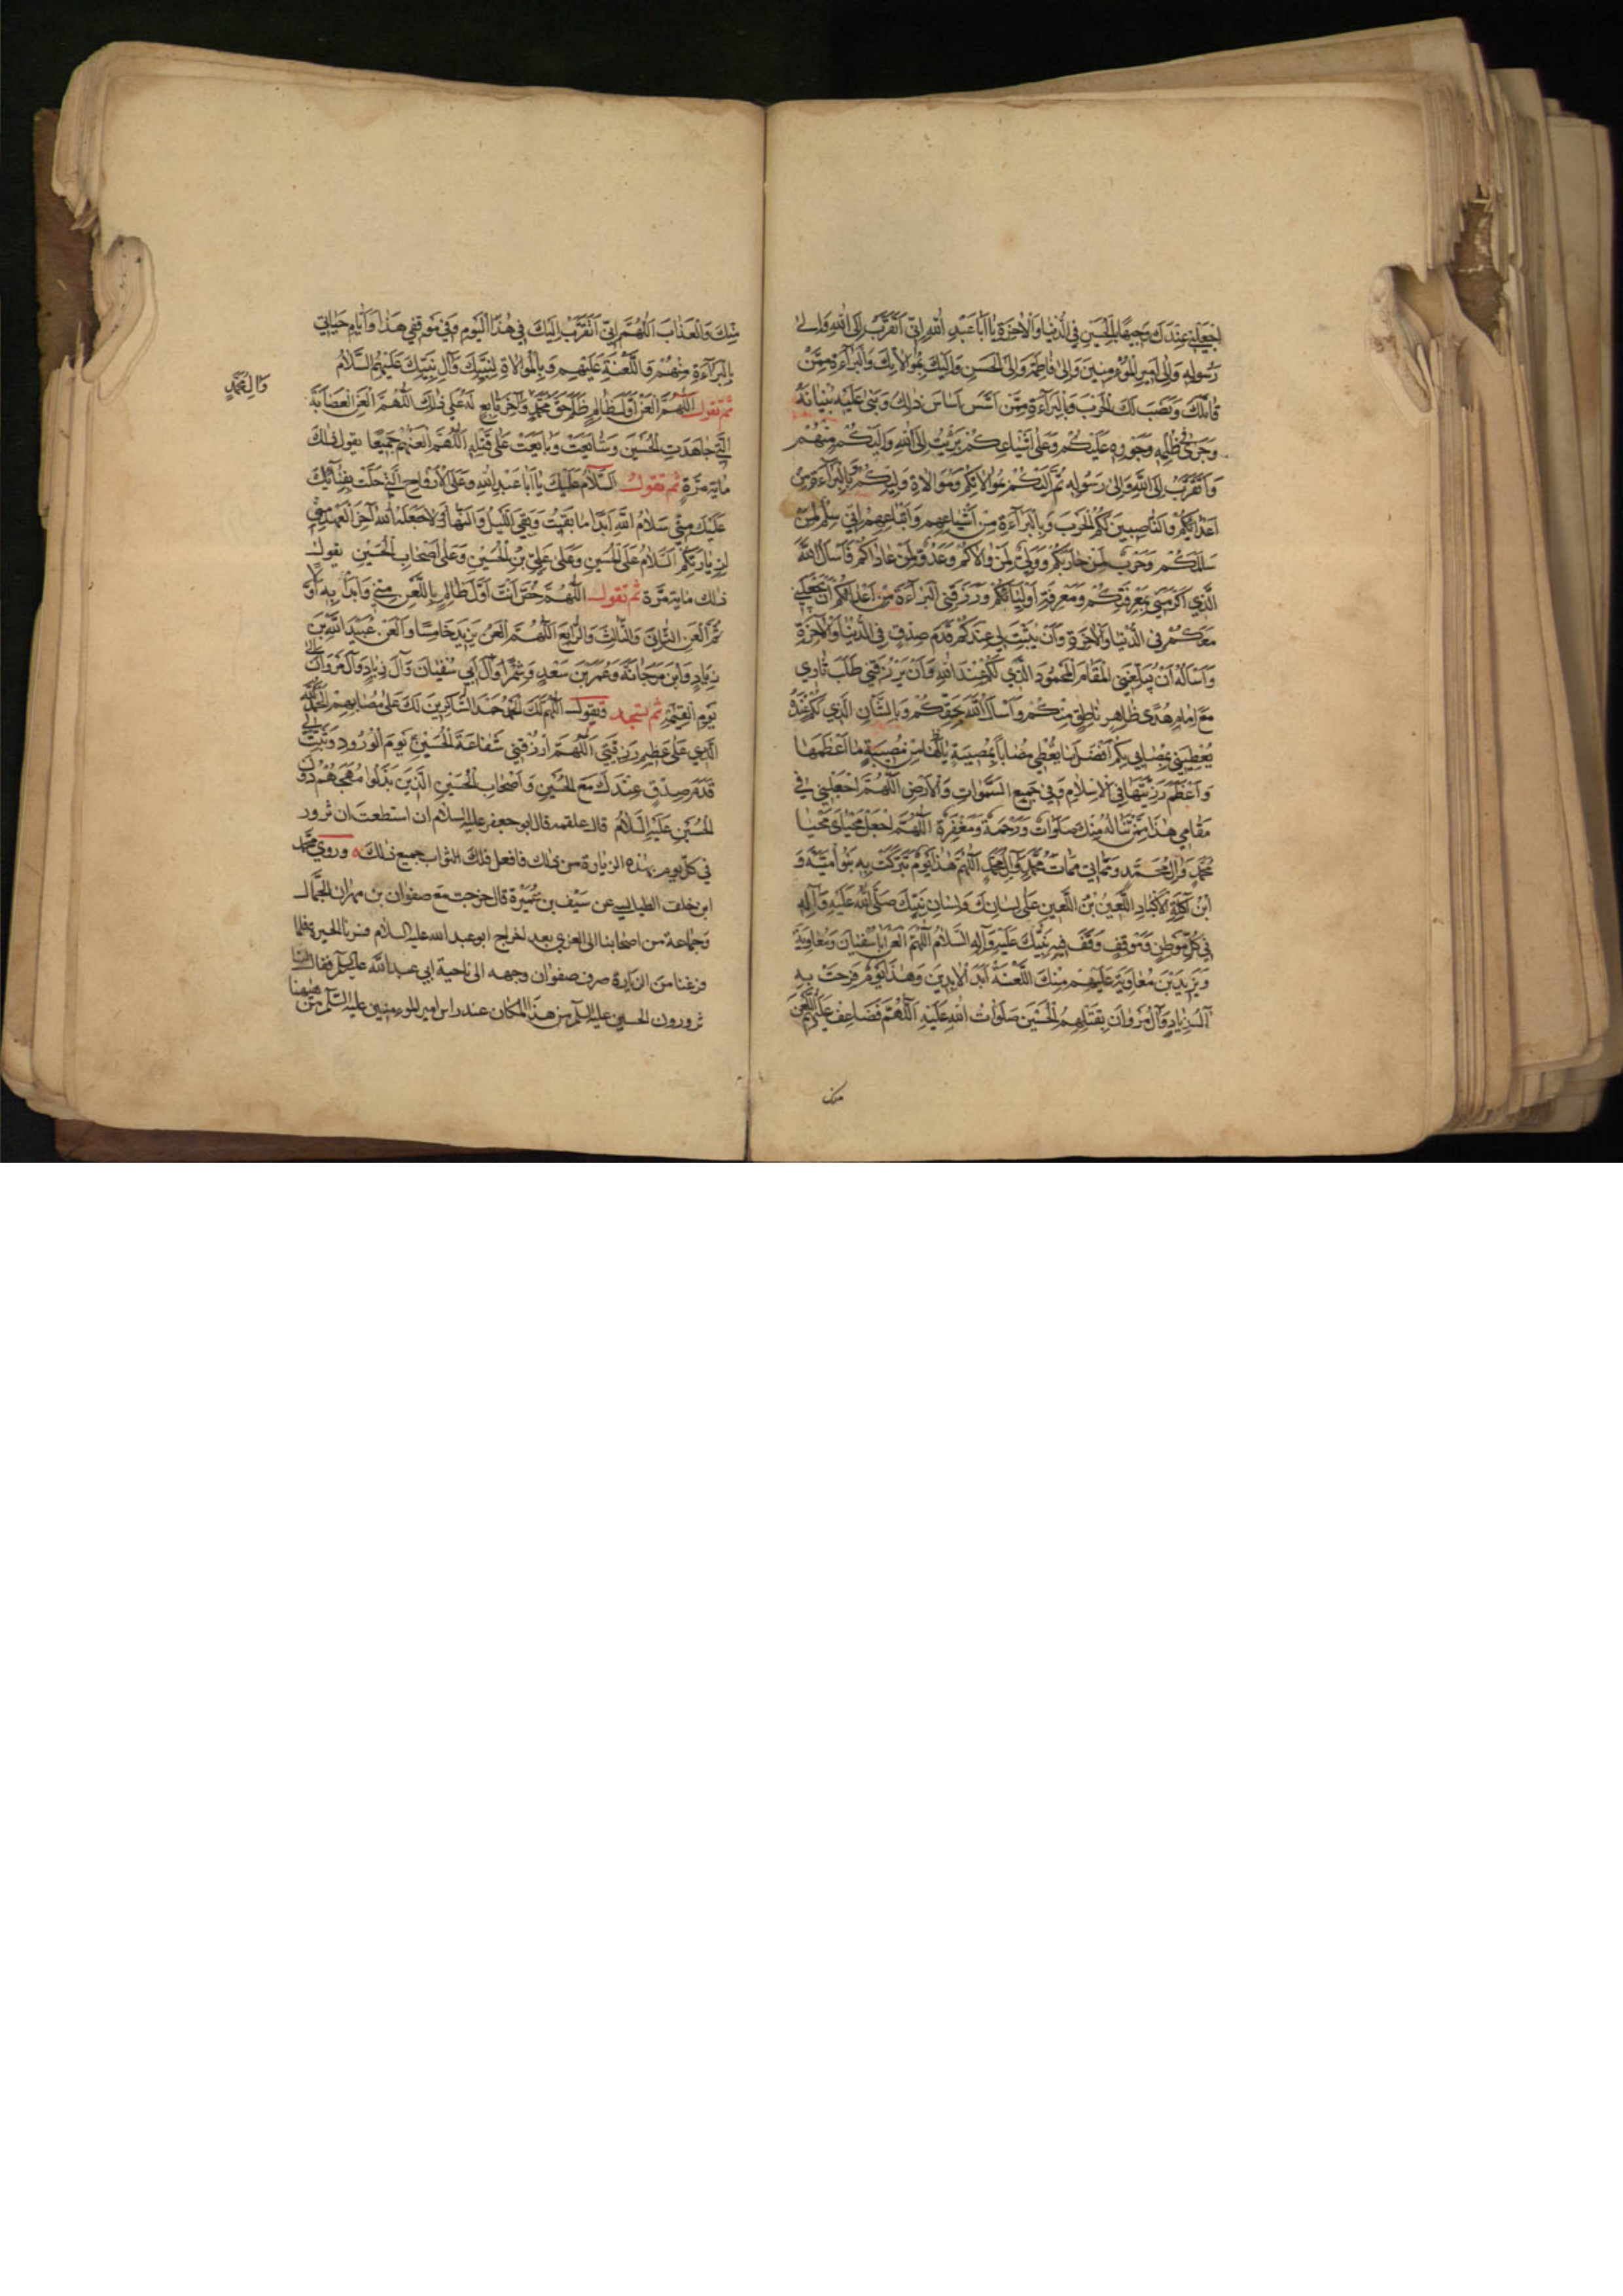 اجعلني عندك وجيها بالحسين في الدنيا والاخرة يا ابا عبد الله اني اتقرب الى الله والى
رسوله والى امير المؤمنين والى فاطمة والى الحسن واليك بموالاتك وبالبراءة ممن
قاتلك ونصب لك الحرب وبالبراءة ممن اسس اساس ذلك وبنى عليه بنيانه
وجرى في ظلمه وجوره عليكم وعلى اشياعكم برئت الى الله واليكم منهم
واتقرب الى الله والى رسوله ثم اليكم بموالاتكم وموالاة وليكم وبالبراءة من
اعدائكم والناصبين لكم الحرب وبالبراءة من اشياعهم واتباعهم اني سلم لمن
سالمكم وحرب لمن حاربكم وولي لمن والاكم وعدو لمن عاداكم فاسأل الله
الذي اكرمني بمعرفتكم ومعرفة اوليائكم ورزقني البراءة من اعدائكم ان يجعلني
معكم في الدنيا والاخرة وان يثبت لي عندكم قدم صدق في الدنيا والاخرة
واسأله ان يبلغني المقام المحمود الذي لكم عند الله وان يرزقني طلب ثاري
مع امام هدى ظاهر ناطق منكم واسأل الله بحقكم وبالشان الذي لكم عنده ان
يعطيني بمصابي بكم افضل ما يعطي مصابا بمصيبة يا لها من مصيبة ما اعظمها
واعظم رزيتها في الاسلام وفي جميع السموات والارض اللهم اجعلني في
مقامي هذا ممن تناله منك صلوات ورحمة ومغفرة اللهم اجعل محياي محيا
محمد وال محمد ومماتي ممات محمد وال محمد اللهم هذا يوم تبركت به بنو امية و
ابن اكلة الاكباد اللعين بن اللعين على لسانك ولسان نبيك صلى الله عليه وآله
في كل موطن وموقف وقف فيه نبيك عليه وآله السلام اللهم العن ابا سفيان ومعاوية
ويزيد بن معاوية عليهم منك اللعنة ابد الابدين وهذا يوم فرحت به
آل زياد وآل مروان بقتلهم الحسين صلوات الله عليه اللهم فضاعف عليهم اللعن
منك
منك والعذاب اللهم اني اتقرب اليك في هذا اليوم وفي موقفي هذا وايام حياتي
بالبراءة منهم واللعنة عليهم وبالموالاة لنبيك وآل نبيك عليهم السلام
ثم تقول اللهم العن اول ظالم ظلم حق محمد وآخر تابع له على ذلك اللهم العن العصابة
وال محمد
التي جاهدت الحسين وشايعت وبايعت على قتله اللهم العنهم جميعا يقول ذلك
مائة مرة ثم تقول السلام عليك يا ابا عبد الله وعلى الارواح التي حلت بفنائك
عليك مني سلام الله ابدا ما بقيت وبقي الليل والنهار ولا جعله الله آخر العهد مني
لزيارتكم السلام على الحسين وعلى علي بن الحسين وعلى اصحاب الحسين يقول
ذلك مائة مرة ثم تقول اللهم خص انت اول ظالم باللعن مني وابدأ به اولا
ثم العن الثاني والثالث والرابع اللهم العن يزيد خامسا والعن عبيد الله بن
زياد وابن مرجانة وعمر بن سعد وشمرا وآل ابي سفيان وآل زياد وآل مروان الى
يوم القيمة ثم تسجد وتقول اللهم لك الحمد حمد الشاكرين لك على مصابهم الحمد لله
الذي على عظيم رزيتي اللهم ارزقني شفاعة الحسين يوم الورود وثبت لي
قدم صدق عندك مع الحسين واصحاب الحسين الذين بذلوا مهجهم دون
الحسين عليه السلام قال علقمه قال ابو جعفر عليه السلام ان استطعت ان تزور
في كل يوم بهذه الزيارة من فافعل فلك الثواب جميع ذلك وروى محمد
ابن خلد الطيالسي عن سيف بن عميرة قال خرجت مع صفوان بن مهران الجمال
وجماعة من اصحابنا الى الغري بعد اخراج ابو عبد الله عليه السلام فسرنا الحيرة فلما
فرغنا من الزيارة صرف صفوان وجهه الى ناحية ابي عبد الله عليه السلم فقال لنا
تزورون الحسين عليه السلم من هذا المكان عند راس امير المؤمنين عليه السلم من هيهنا